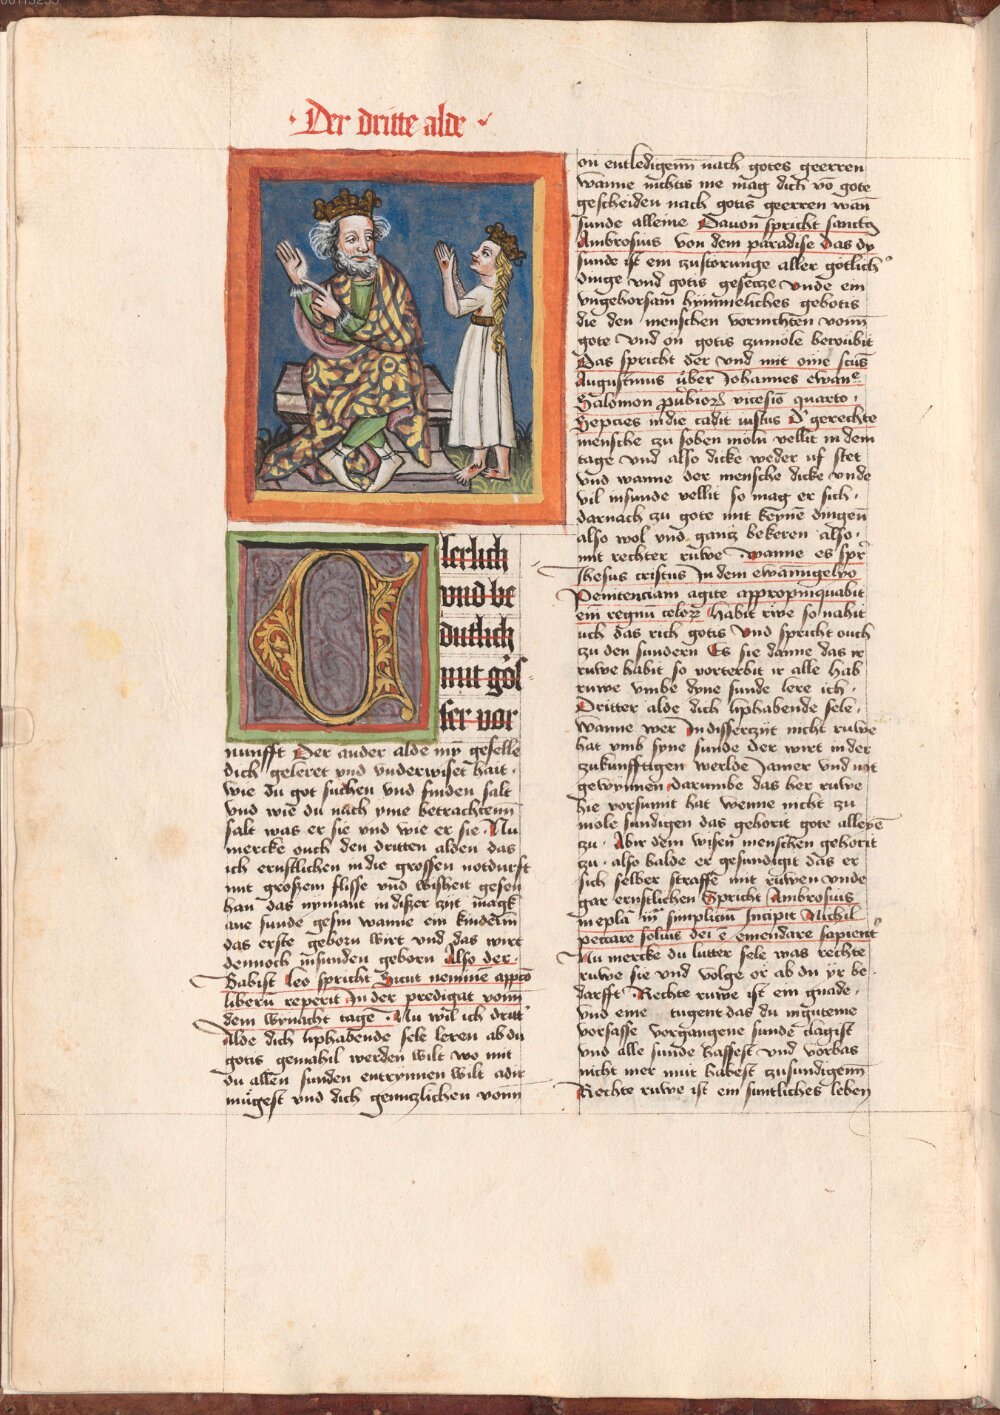 Der dritte alde
Userlich
vnd be
dutlich
mit gos
ser vor
nunfft Der ander alde myn geselle
dich geleret vnd vnderwiset hait
wie du got suchen vnd finden salt
vnd wie du nach yme betrachtenn
salt was er sie vnd wie er sie Nu
mercke ouch den dritten alden das
ich ernstlichen in die grossen notdurft
mit großem flisse vnd wisheit gesen
han das nymant in dißer zyt magk
ane sunde gesin wanne ein kindelin
das erste geborn wirt vnd das wirt
dennoch in sunden geborn Also der
Babist Leo spricht Sicut neminem appco
liberu reperit In der predigat vonn
dem wynacht tage Nu wil ich dritt
Alde dich liphabende sele leren ab du
gotis gemahil werden wilt wo mit
du allen sunden entrynnen wilt adir
mugest vnd dich gentzlichen vonn
on entledigenn nach gotes geerren
wanne nichtis me mag dich vo gote
gescheiden nach gotis geerren wan
sunde alleine Dauon spricht sanctus
Ambrosius von dem paradise das dy
sunde ist ein zustorunge aller gotlich
dinge vnd gotis gesecze vnde ein
vngehorsam hymmeliches gebotis
die den menschen vornichten vonn
gote vnd on gotis zumole beroubit
Das spricht der vnd mit eine scus
Augustinus uber Johannes ewane
Salomon pubior vicesio quarto
Sepcies in die cadit iustus Der gerechte
mensche zu soben moln vellit in dem
tage vnd also dicke weder uf stet
vnd wanne der mensche dicke vnde
vil in sunde vellit so mag er sich
darnach zu gote mit keyne dingen
also wol vnd gantz bekeren also
mit rechter ruwe wanne es spr
Ihesus cristus In dem ewanngelyo
Penitenciam agite appropinquabit
eni regnu celor Habit rwe so nahit
uch das rich gotis Vnd spricht ouch
zu den sundern Es sie danne das ir
ruwe habit so vorterbit ir alle Hab
ruwe vmbe dyne sunde lere ich
Dritter alde dich liphabende sele
wanne wer In disser czyt nicht ruwe
hat vmb syne sunde der wirt in der
zukunfftigen werlde Jamer vnd not
gewynnen darumbe das her ruwe
hie vorsumt hat wenne nicht zu
mole sundigen das gehorit gote alleyne
zu Abir dem wisen menschen gehorit
zu also balde er gesundigit das er
sich selber straffe mit ruwen vnde
gar ernstlichen Spricht Ambrosius
in epla simplicium Incipit Nichil
peccare solius dei e emendare sapient
Nu mercke du lutter sele was rechte
ruwe sie vnd volge or ab du yr be
darfft Rechte ruwe ist ein gnade
vnd eine tugent das du in guteme
vorsasse vorgangene sunde clagist
vnd alle sunde hassest vnd vorbas
nicht mer mut habest zusundigenn
Rechte ruwe ist ein suntliches leben